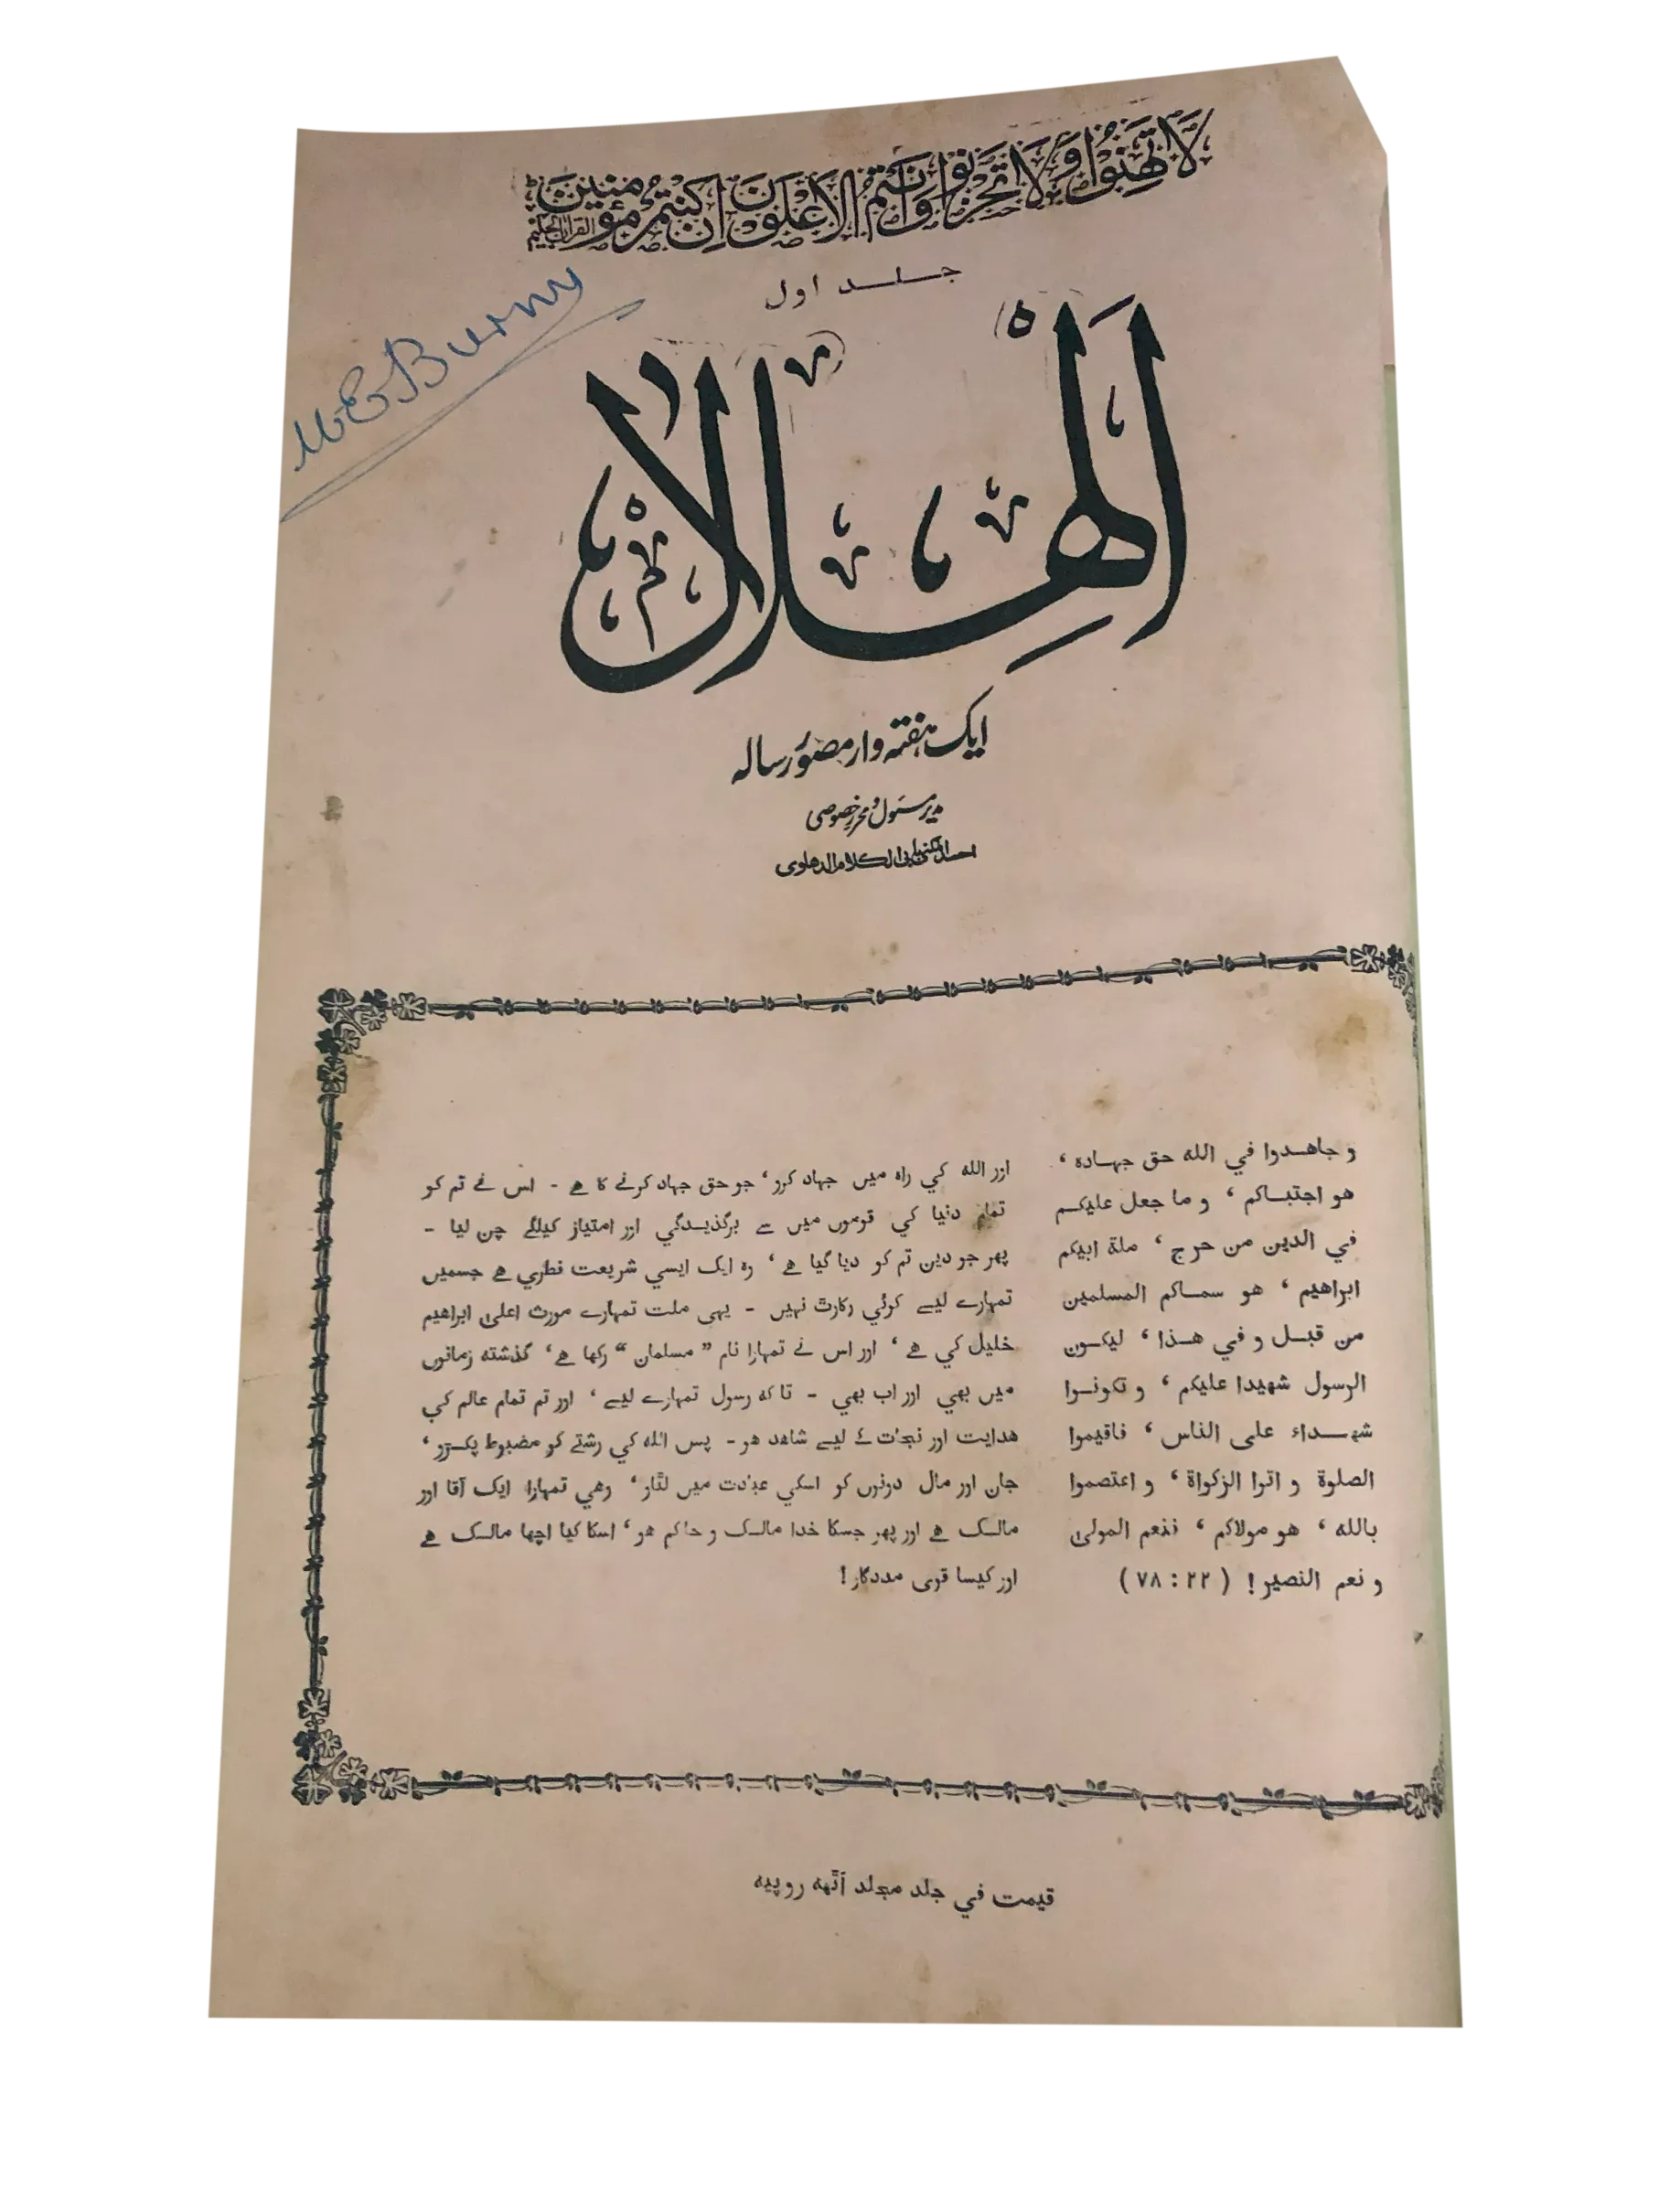 لَا تَهِنُوا وَلَا تَحْزَنُوا وَأَنتُمُ الْأَعْلَوْنَ إِن كُنتُم مُّؤْمِنِينَ
القرآن الحكيم
جلد اول
M E Burny
الهلال
ایک ہفتہ وار مصوّر رسالہ
مدیر مسئول و محرر خصوصی
ابی الکلام الدہلوی
و جاهدوا في الله حق جهاده ‘
هو اجتباكم ‘ و ما جعل عليكم
في الدين من حرج ‘ ملة ابيكم
ابراهيم ‘ هو سماكم المسلمين
من قبل و في هذا ‘ ليكون
الرسول شهيدا عليكم ‘ و تكونوا
شهداء على الناس ‘ فاقيموا
الصلوة و اتوا الزكواة ‘ و اعتصموا
بالله ‘ هو مولاكم ‘ فنعم المولى
و نعم النصير ! ( ٢٢ : ٧٨ )
اور الله کي راه میں جہاد کرو ‘ جو حق جہاد کرنے کا ہے - اس نے تم کو
تمام دنیا کي قوموں میں سے برگذیدگي اور امتیاز کیلئے چن لیا -
پھر جو دین تم کو دیا گیا ہے ‘ وہ ایک ایسي شریعت فطري ہے جسمیں
تمہارے لیے کوئي رکاوٹ نہیں - یہی ملت تمہارے مورث اعلیٰ ابراهیم
خلیل کي ہے ‘ اور اس نے تمہارا نام ” مسلمان “ رکھا ہے ‘ گذشتہ زمانوں
میں بھي اور اب بھي - تا کہ رسول تمہارے لیے ‘ اور تم تمام عالم کي
هدایت اور نجات کے لیے شاهد هو - پس الله کي رشتے کو مضبوط پکڑو ‘
جان اور مال دونوں کو اسکي عبادت میں لٹاو ‘ وهي تمہارا ایک آقا اور
مالک ہے اور پھر جسکا خدا مالک و حاکم هو ‘ اسکا کیا اچھا مالک ہے
اور کیسا قوی مددگار !
قیمت في جلد مجلد آٹھہ روپیہ